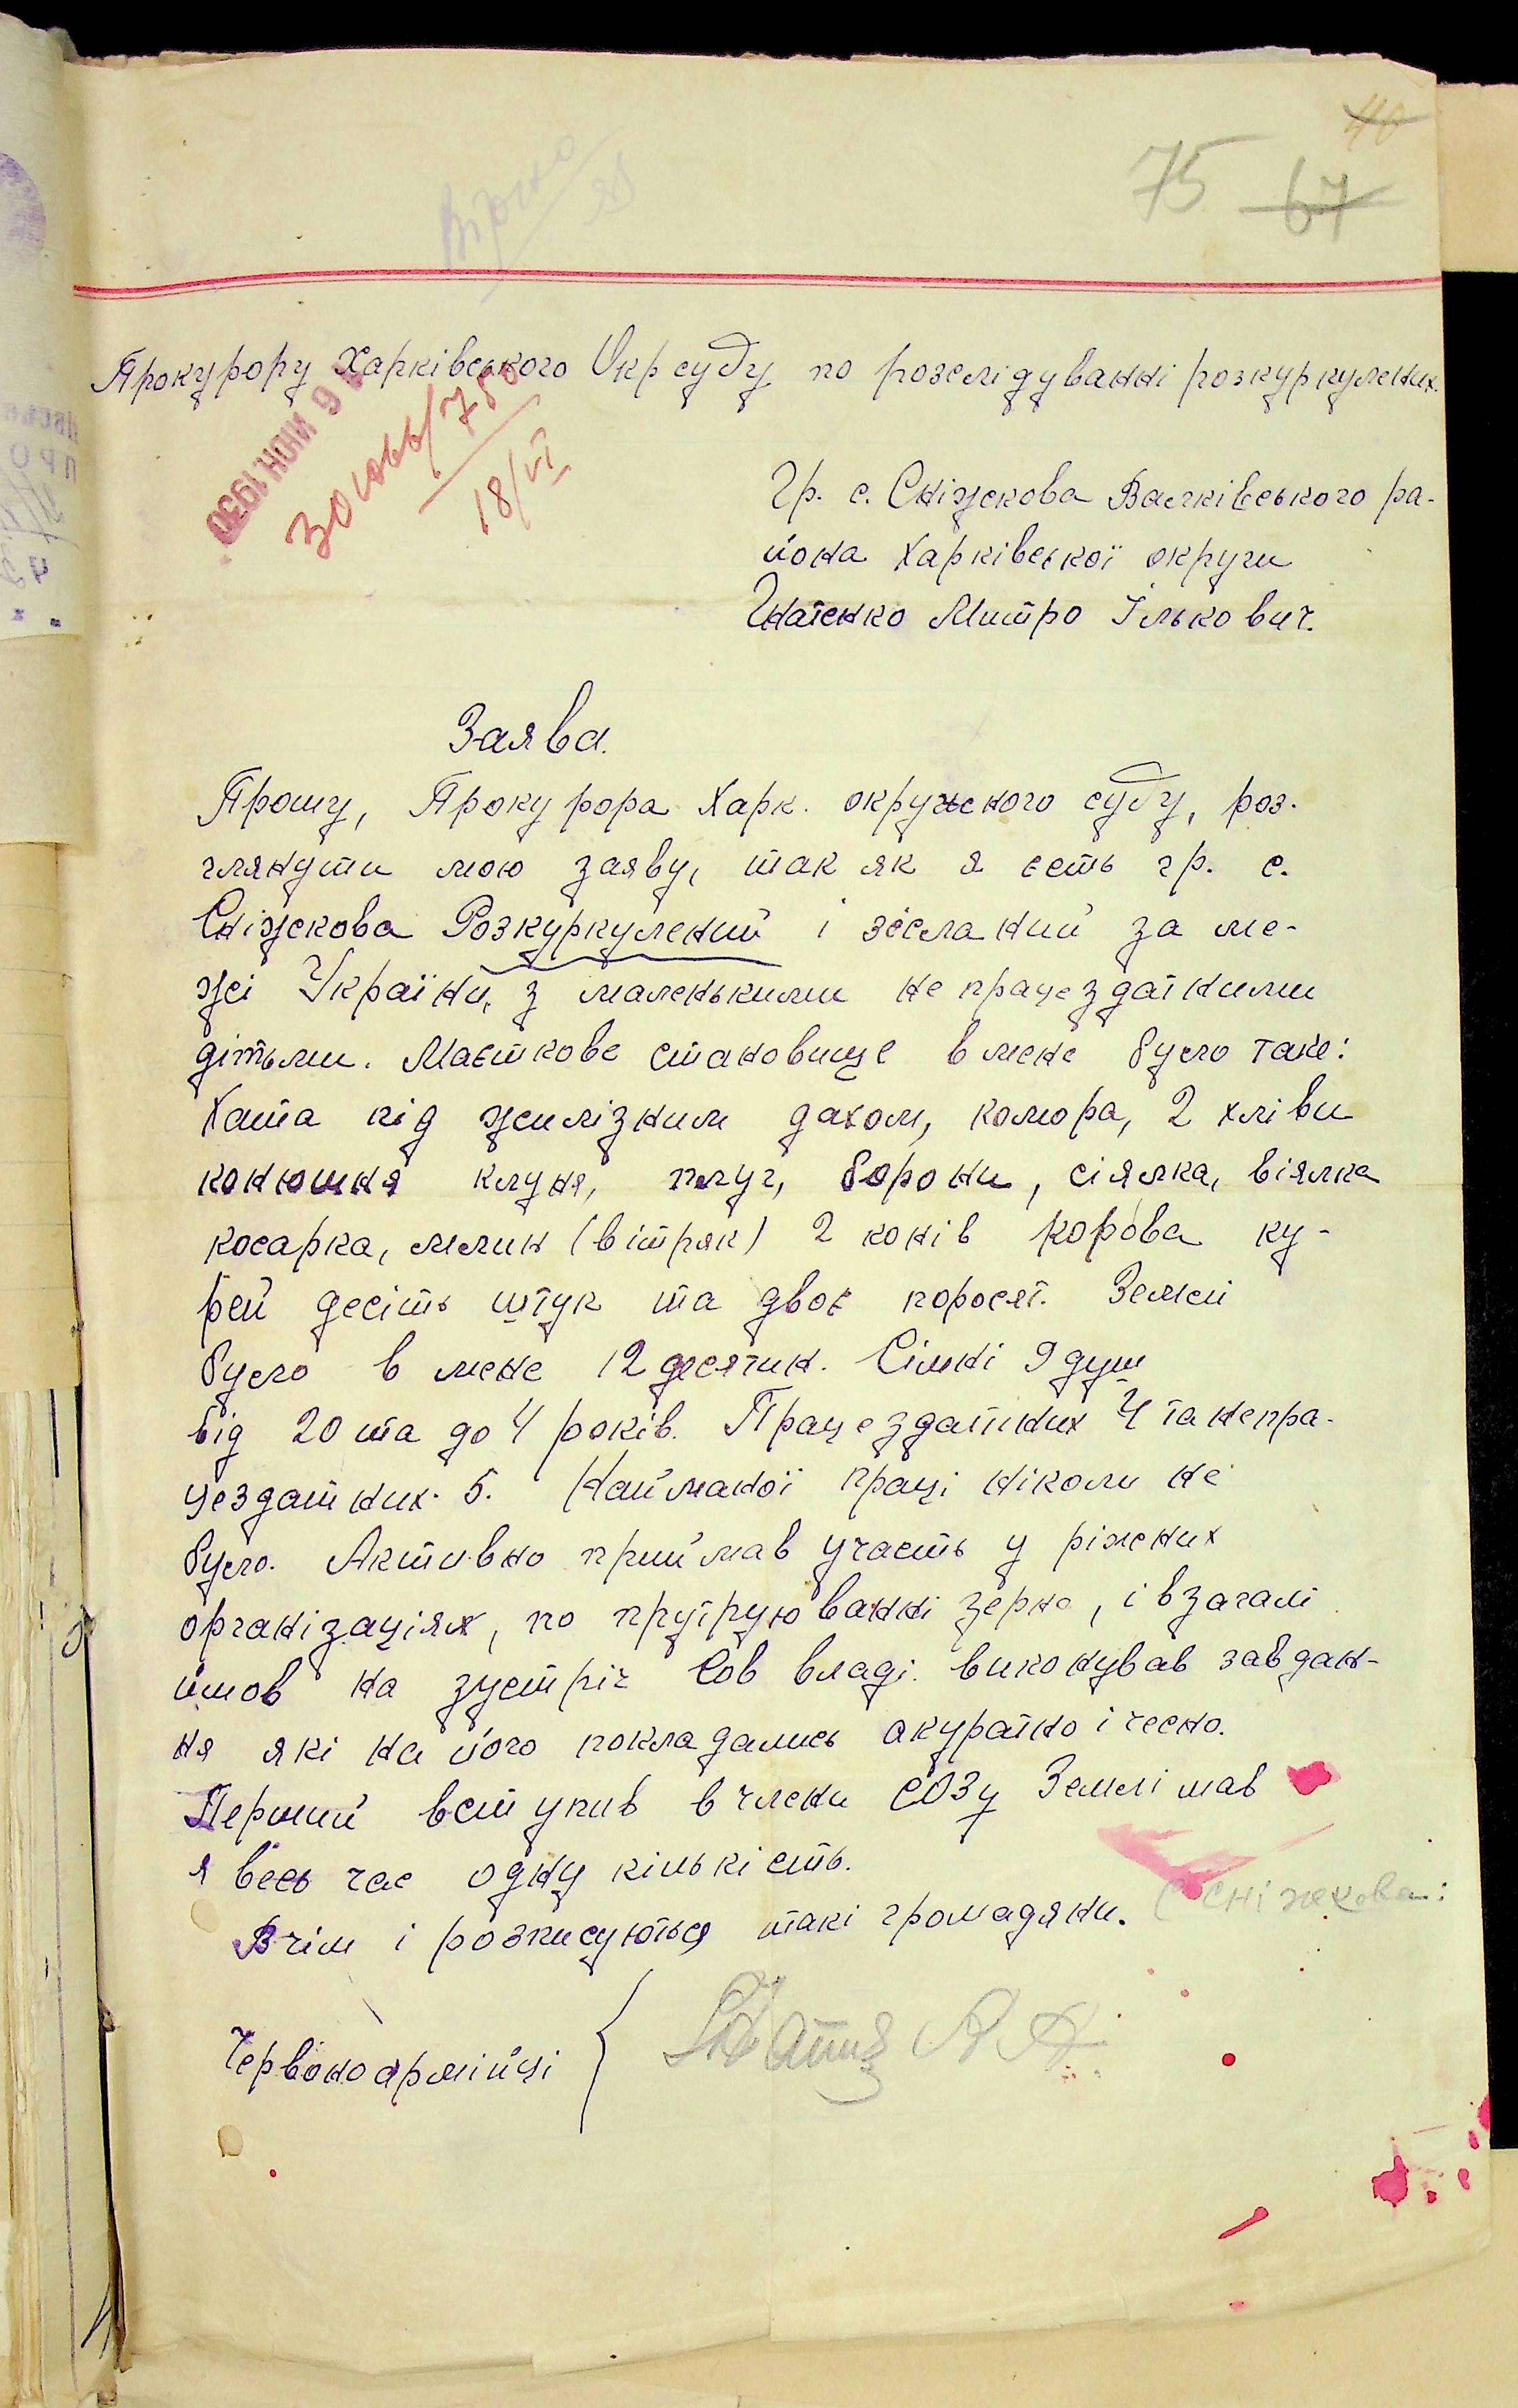 40
75 67
Прокурору Харківського Окрсуду по розслідуванні розкуркулених.
6 ИЮН. 1930
18/VI
Гр. с. Сніжскова Валківського ра-
йона Харківської округи
Гнатенко Митро Ількович.
Заява.
Прошу, Прокурора Харк. окружного суду, роз-
глянути мою заяву, так як я єсть гр. с.
Сніжскова Розкуркулений і зісланий за ме-
жі України, з маленькими не працездатними
дітьми. Маєткове становище в мене було таке:
Хата під жилізним дахом, комора, 2 хліви
конюшня клуня, плуг, борони, сіялка, віялка
косарка, млин (вітряк) 2 конів корова ку-
рей десіть штук та двоє поросят. Землі
було в мене 12 десятин. Сімні 9 душ
від 20 та до 4 років. Працездатних 4 та непра-
цездатних. 5. Найманої праці ніколи не
було. Активно приймав участь у ріжних
організаціях, по протруюванні зерна, і взагалі
йшов на зустріч Сов владі. виконував завдан-
ня які на його покладались акуратно і чесно.
Перший вступив в члени СОЗу Землі мав
я весь час одну кількість.
В чім і розписуються такі громадяни. с Сніжкова:
Червоноармійці {